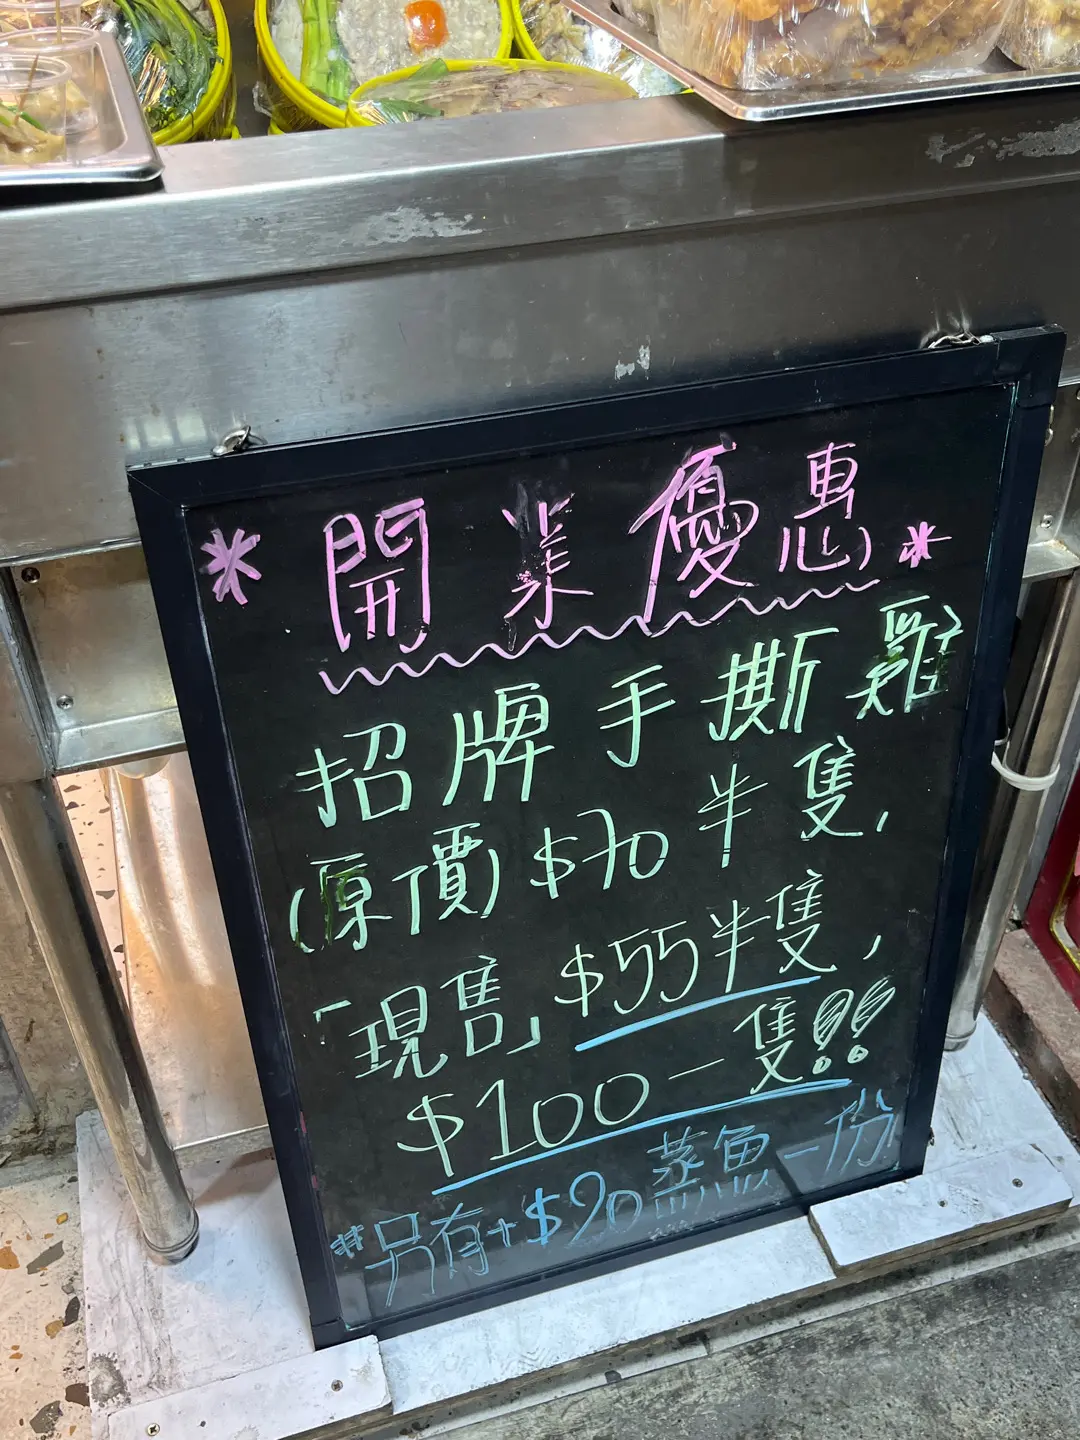 * 開業優惠 *
招牌手撕雞
(原價) $70 半隻,
「現售」$55半隻,
$100一隻!!
*另有+$90蒸魚一份